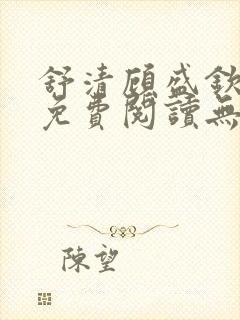 舒清顾盛欽
免費閱讀無
陳望